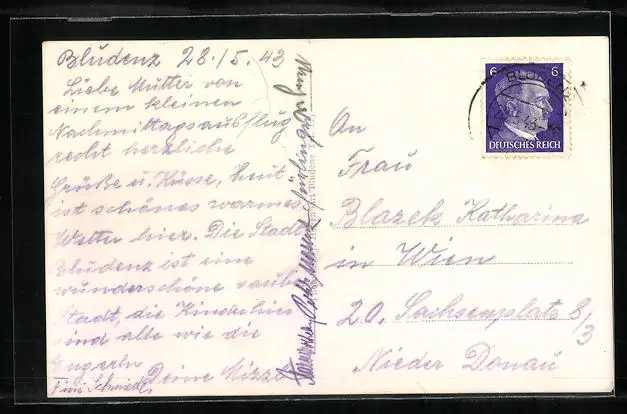 Bludenz 28./5. 43
Liebe Mutter von
einem kleinen
Nachmittagsausflug
recht herzliche
Grüße u. Küsse, heut
ist schönes warmes
Wetter hier. Die Stadt
Bludenz ist eine
wunderschöne saube
Stadt, die Kinder hier
sind alle wie die
Engerln
Deine Mizzi
An
Frau
Blazek Katharina
in Wien
20. Sachsenplatz 8/3
Nieder Donau
6 6
DEUTSCHES REICH
43